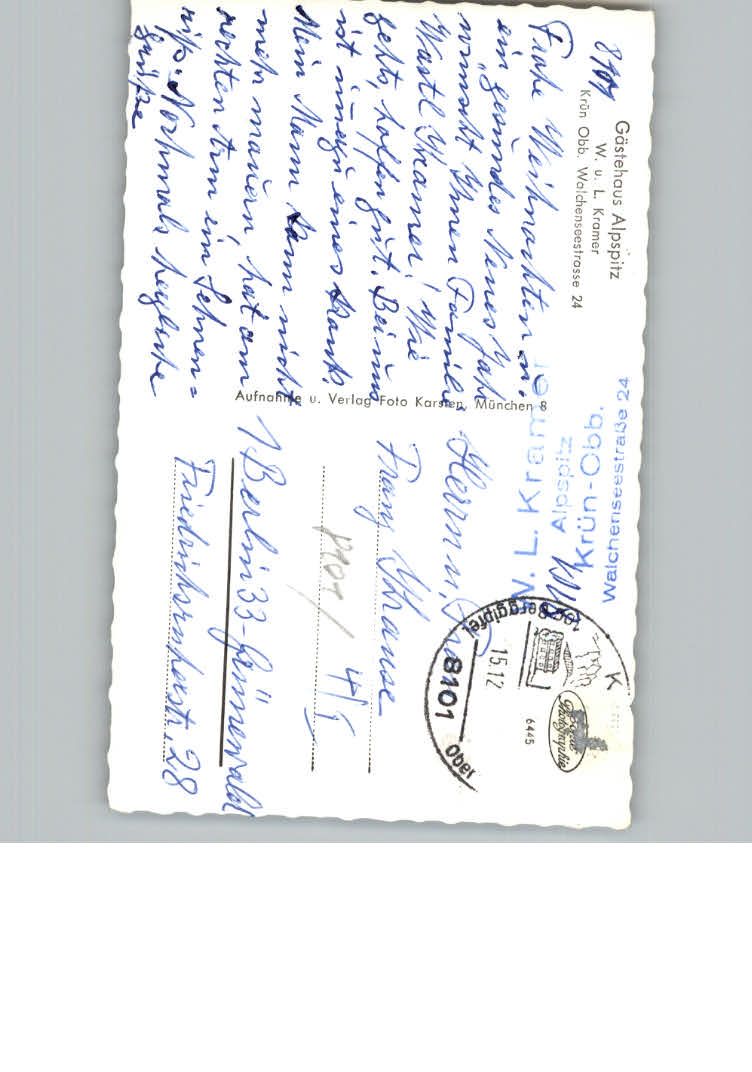 Gästehaus Alpspitz
W. u. L. Kramer
Krün Obb. Walchenseestrasse 24
8101
Frohe Weihnachten u.
ein "gesundes Neues Jahr
wünscht Ihnen Familie
Wastl Kramer! Wie
gehts, hoffen gut. Bei uns
ist immer einer krank.
Mein Mann kann nicht
mehr mauern hat am
rechten Arm ein Sehnen=
riß. Nochmals herzliche
Grüße
Aufnahme u. Verlag Foto Karsten, München 8
W. L. Kramer
Alpspitz
Krün-Obb.
Walchenseestraße 24
Herrn u. Frau
Franz Krause
1 Berlin 33-Grünewald
Friedrichsruherstr. 28
8101
15.12
8101
Ober
K
6445
Photographie